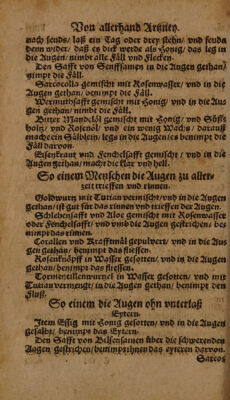 Von allerhand Artzney.
nach sends/ laß ein Tag oder drey stehn/ vnd seuds
denn wider/ daß es dick werde als Honig/ das leg in
die Augen/ nimbt alle Fäll vnd Flecken.
Den Safft von Senffsamen in die Augen gethan/
nimpt die Fäll.
Sarcocolla gemischt mit Rosenwasser/ vnd in die
Augen gethan/ benimpt die Fäll.
Wermuthsafft gemischt mit Honig/ vnd in die Au-
gen gethan/ nimbt die Fäll.
Bitter Mandelöl gemischt mit Honig/ vnd Süß-
holtz/ vnd Rosenöl/ vnd ein wenig Wachs/ darauß
mach ein Sälblein/ legs in die Augen/ es benimpt die
Fäll darvon.
Eisenkraut vnd Fenchelsafft gemischt/ vnd in die
Augen gethan/ macht die klar vnd hell.
So einem Menschen die Augen zu aller-
zeit trieffen vnd rinnen.
Goldwurtz mit Tutian vermischt/ vnd in die Augen
gethan/ ist gut für das rinnen vnd trieffen der Augen.
Schlehensafft vnd Aloe gemischt mit Rosenwasser
oder Fenchelsafft/ vnd vnd die Augen gestrichen/ be-
nimpt das rinnen.
Corallen vnd Krafftmäl gepulvert/ vnd in die Au-
gen gethan/ benimpt das fliessen.
Rosenknöpff in Wasser gesotten/ vnd in die Augen
gethan/ benimpt das fliessen.
Tormentillenwurtzel in Wasser gesotten/ vnd mit
Tutian vermengt/ in die Augen gethan/ benimpt den
Fluß.
So einem die Augen ohn vnterlaß
Eytern.
Item Essig mit Honig gesotten/ vnd in die Augen
gesalbt/ benimpt das Eytern.
Den Safft von Bilsensamen über die schwerenden
Augen gestrichen/ benimpt ihnen das eyteren darvon.
Sarcos